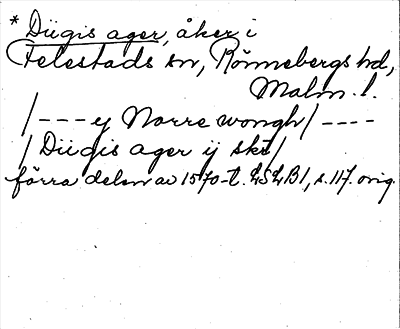 * Diigis ager, åker i
Felestads sn, Rönnebergs hd,
Malm. l.
/--- ey Norre wongh/ ----
/ Diigis ager ij skt/
förra delen av 1570-t. LSLB1, s. 117. orig.